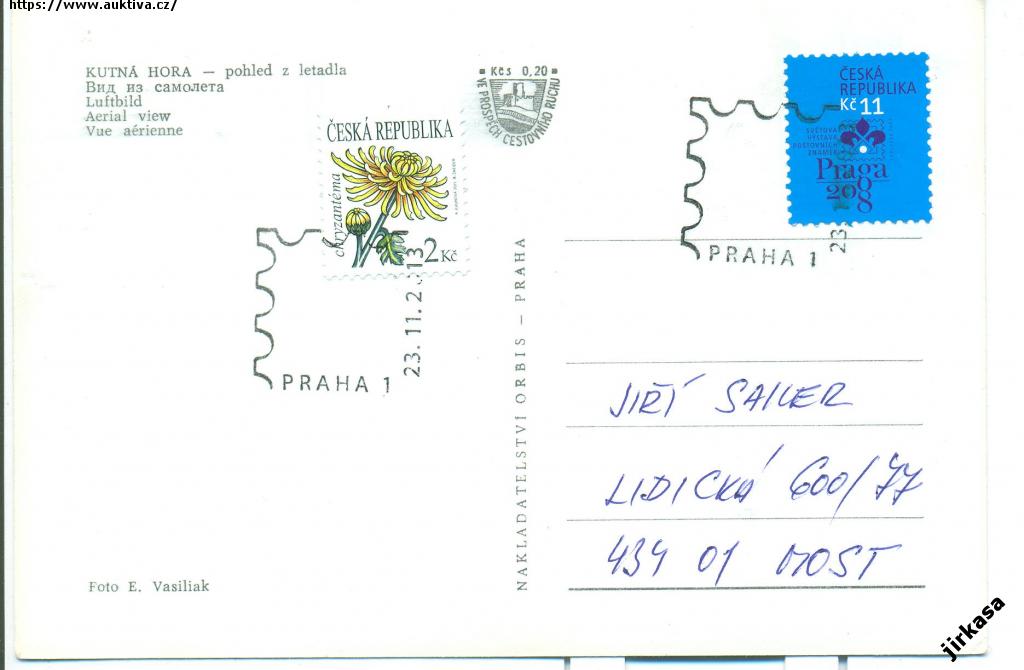 https://www.auktiva.cz/
KUTNÁ HORA — pohled z letadla
Вид из самолета
Luftbild
Aerial view
Vue aérienne
Kčs 0,20
VE PROSPĚCH CESTOVNÍHO RUCHU
ČESKÁ REPUBLIKA
chryzantéma
2 Kč
PRAHA 1
23. 11. 2 13
ČESKÁ
REPUBLIKA
Kč 11
SVĚTOVÁ
VÝSTAVA
POŠTOVNÍCH
ZNÁMEK
Praga
2008
PRAHA 1
23.
NAKLADATELSTVÍ ORBIS — PRAHA
JIŘÍ SAILER
LIDICKÁ 600/77
434 01 MOST
Foto E. Vasiliak
jirkasa